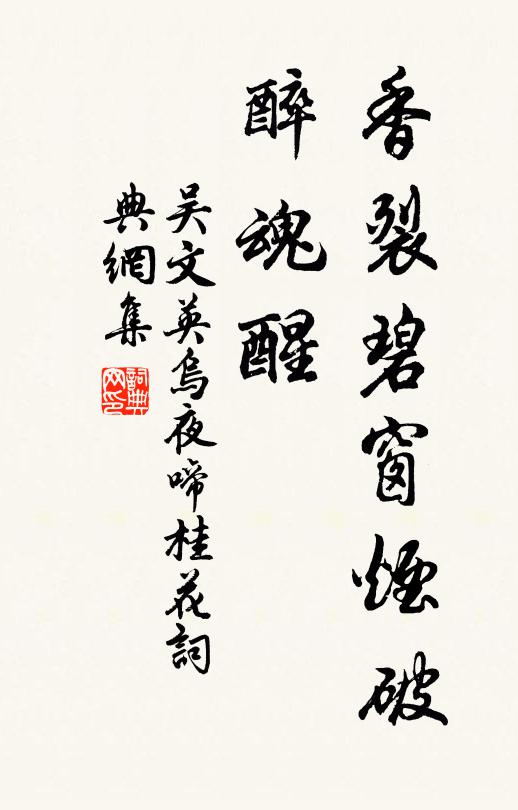 香裂碧窗煙破
醉魂醒
吴文英烏夜啼桂花詞
典網集
詞典網印